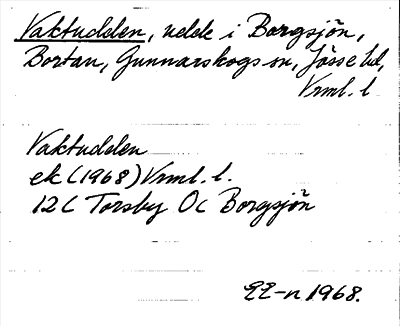 Vaktudden, udde i Borgsjön,
Bortan, Gunnarskogs sn, Jösse hd,
Vrml. l
Vaktudden
ek (1968) Vrml. l.
12C Torsby Oc Borgsjön
1968.